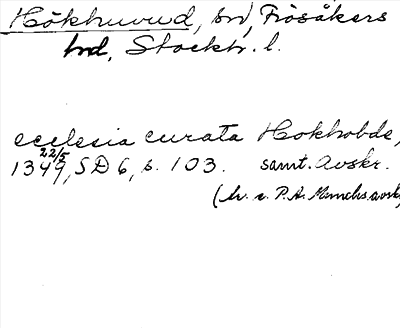 Hökhuvud, sn, Frösåkers
hd, Stockh. l.
ecclesia curata Hokhobde,
1349 22/5, SD 6, s. 103. samt. Avskr.
(hr. e. P. A. Munchs avskr.